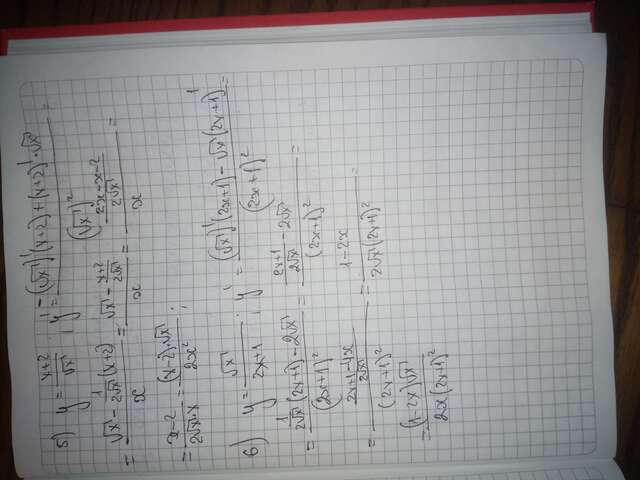 5) y = \frac{x+2}{\sqrt{x}} ; y' = \frac{-(\sqrt{x})'(x+2)+(x+2)' \cdot \sqrt{x}}{(\sqrt{x})^2} =
= \frac{\sqrt{x} - \frac{1}{2\sqrt{x}}(x+2)}{x} = \frac{\sqrt{x} - \frac{x+2}{2\sqrt{x}}}{x} = \frac{\frac{2x-x-2}{2\sqrt{x}}}{x} =
= \frac{x-2}{2\sqrt{x} \cdot x} = \frac{(x-2) \cdot \sqrt{x}}{2x^2} ;
6) y = \frac{\sqrt{x}}{2x+1} ; y' = \frac{(\sqrt{x})'(2x+1) - \sqrt{x}(2x+1)'}{(2x+1)^2} =
= \frac{\frac{1}{2\sqrt{x}}(2x+1) - 2\sqrt{x}}{(2x+1)^2} = \frac{\frac{2x+1}{2\sqrt{x}} - 2\sqrt{x}}{(2x+1)^2} =
= \frac{\frac{2x+1-4x}{2\sqrt{x}}}{(2x+1)^2} = \frac{1-2x}{2\sqrt{x}(2x+1)^2} =
= \frac{(1-2x)\sqrt{x}}{2x(2x+1)^2}